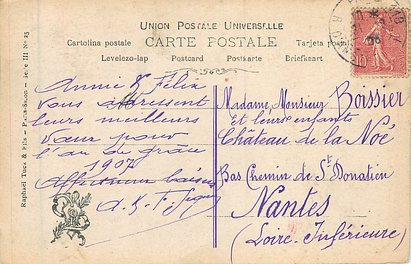 UNION POSTALE UNIVERSELLE
Cartolina postale CARTE POSTALE Tarjeta postal
Levelezo-lap Postcard Postkarte Briefkaart
Raphaël Tuck & Fils - Paris - Série III No 25
Annie & Félix
vous adressent
leurs meilleurs
vœux pour
l'an de grâce
1907
Affectueux baisers
A. & F.
Madame, Monsieur Boissier
et leurs enfants
Château de la Noé
Bas Chemin de St Donatien
Nantes
(Loire-Inférieure)